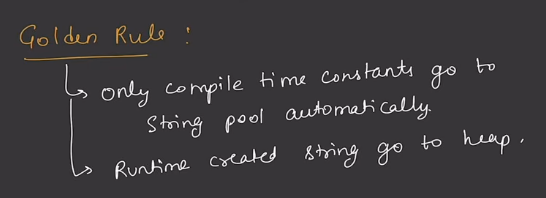 Golden Rule :
only compile time constants go to
String pool automatically.
Runtime created string go to heap.